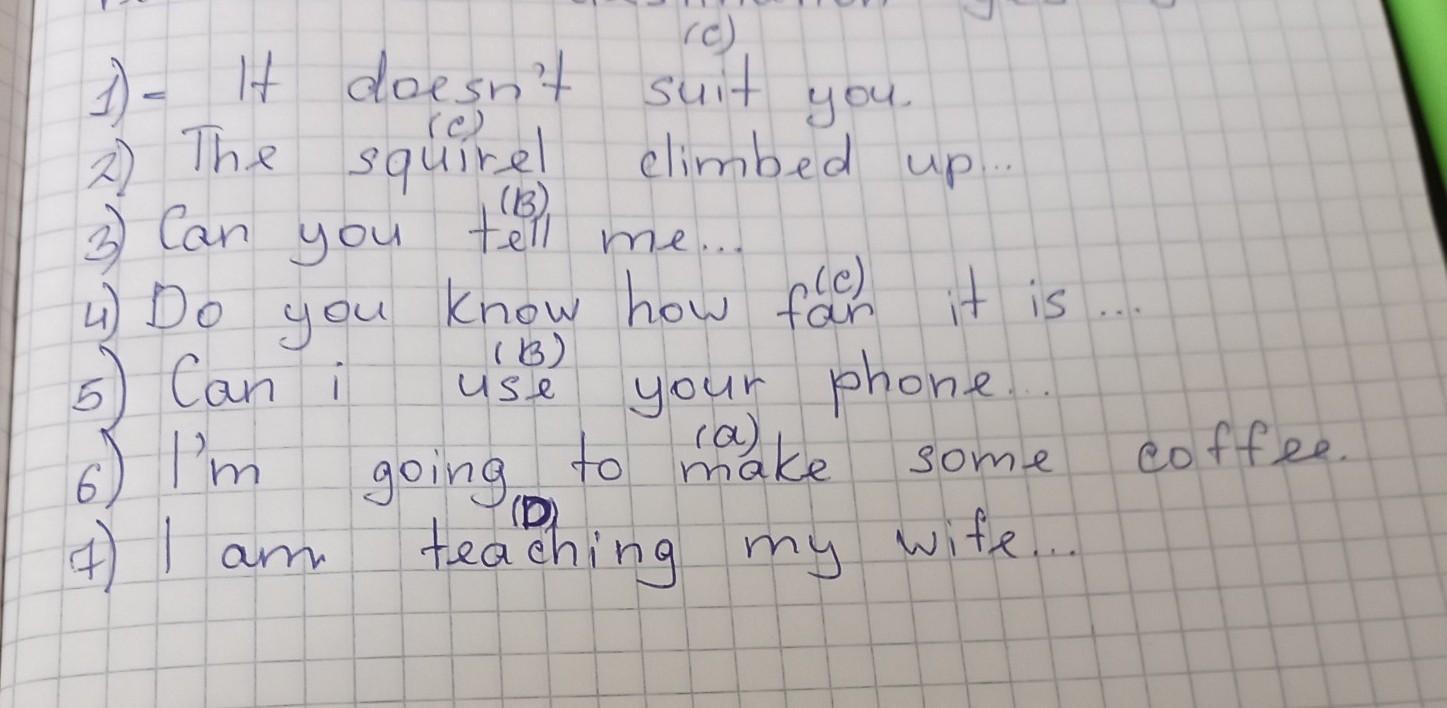 (c)
1)- It doesn't suit you.
(c)
2) The squirel climbed up...
(B)
3) Can you tell me...
(c)
4) Do you know how far it is ...
(B)
5) Can i use your phone...
(a)
6) I'm going to make some coffee.
(D)
7) I am teaching my wife...